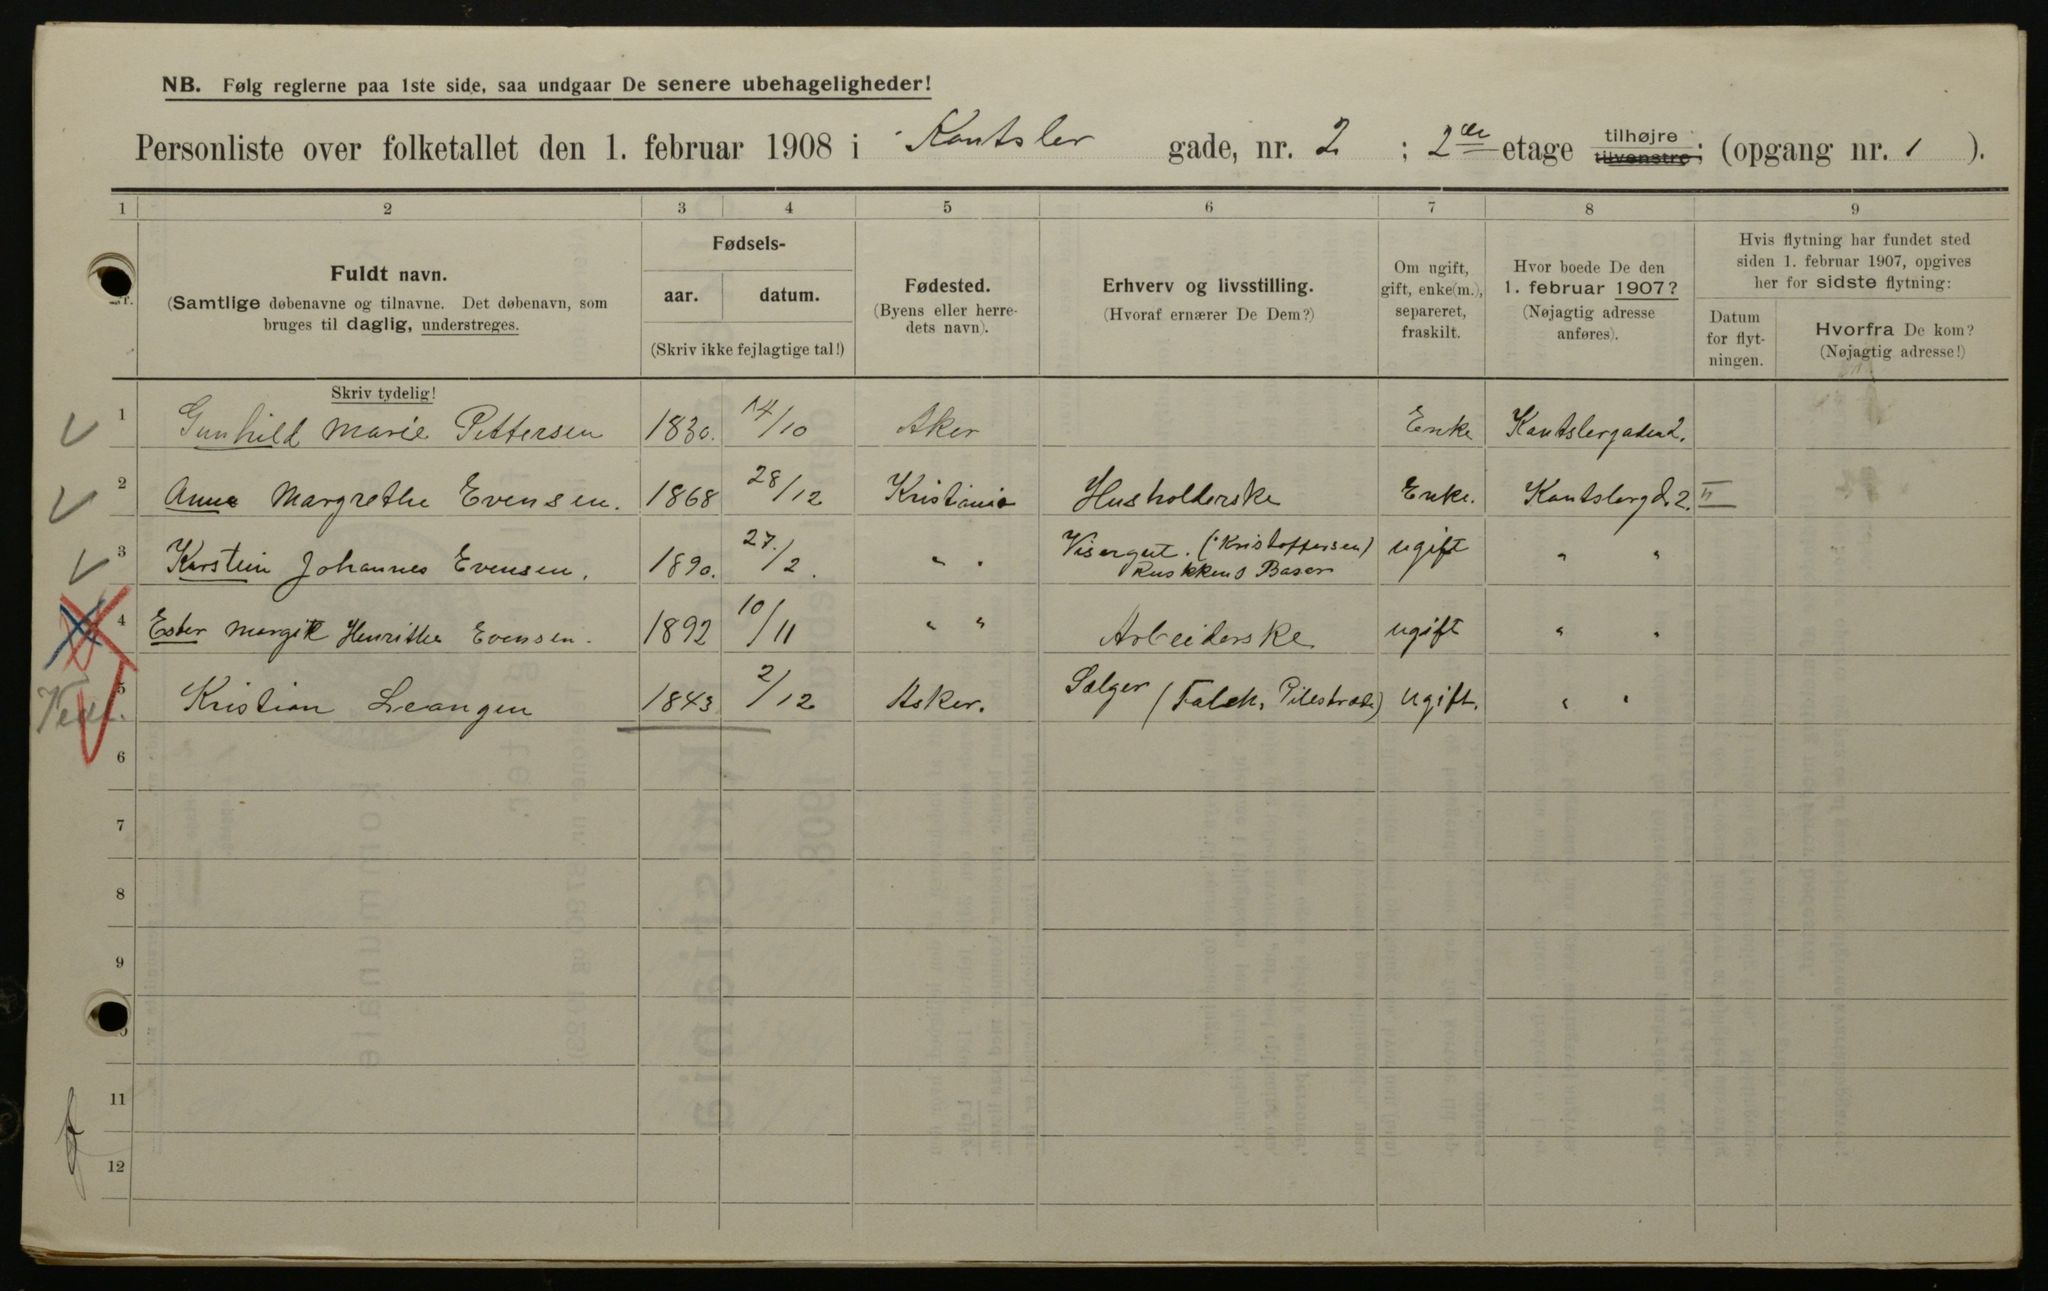 NB. Følg reglerne paa 1ste side, saa undgaar De senere ubehageligheder!
Personliste over folketallet den 1. februar 1908 i Kantsler gade, nr. 2 ; 2den etage tilhøjre tilvenstre; (opgang nr. 1 ).
1 2 3 4 5 6 7 8 9
Nr.
Fuldt navn.
(Samtlige døbenavne og tilnavne. Det døbenavn, som
bruges til daglig, understreges.
Fødsels-
aar. datum.
(Skriv ikke fejlagtige tal!)
Fødested.
(Byens eller herre-
dets navn).
Erhverv og livsstilling.
(Hvoraf ernærer De Dem?)
Om ugift,
gift, enke(m.),
separeret,
fraskilt.
Hvor boede De den
1. februar 1907?
(Nøjagtig adresse
anføres).
Hvis flytning har fundet sted
siden 1. februar 1907, opgives
her for sidste flytning:
Datum
for flyt-
ningen.
Hvorfra De kom?
(Nøjagtig adresse!)
Skriv tydelig!
1 Gunhild Marie Pettersen 1830. 14/10 Aker Enke Kantslergaden 2.
2 Anna Margrethe Evensen. 1868 28/12 Kristiania Husholderske Enke. Kantslergd. 2. II
3 Karstein Johannes Evensen. 1890. 27/2. " " Visergut. (Kristoffersen) ugift " "
Basar
4 Ester Margit Henrithe Evensen. 1892 10/11 " " Arbeiderske ugift " "
5 Kristian Leangen 1843 2/12 Asker. Sælger (Falck, Pilestræde) ugift. " "
6
7
8
9
11
12